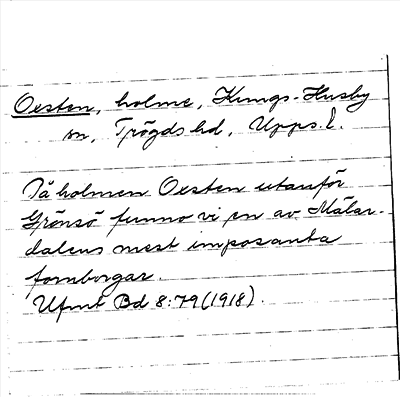 Oesten, holme, Kungs-Husby
sn, Trögds hd, Upps. l.
På holmen Oesten utanför
Grönsö funno vi en av Mälar-
dalens mest imposanta
fornborgar.
Ufmt Bd 8:79 (1918).